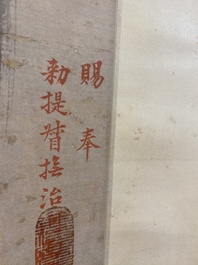 賜奉
勅提督撫治